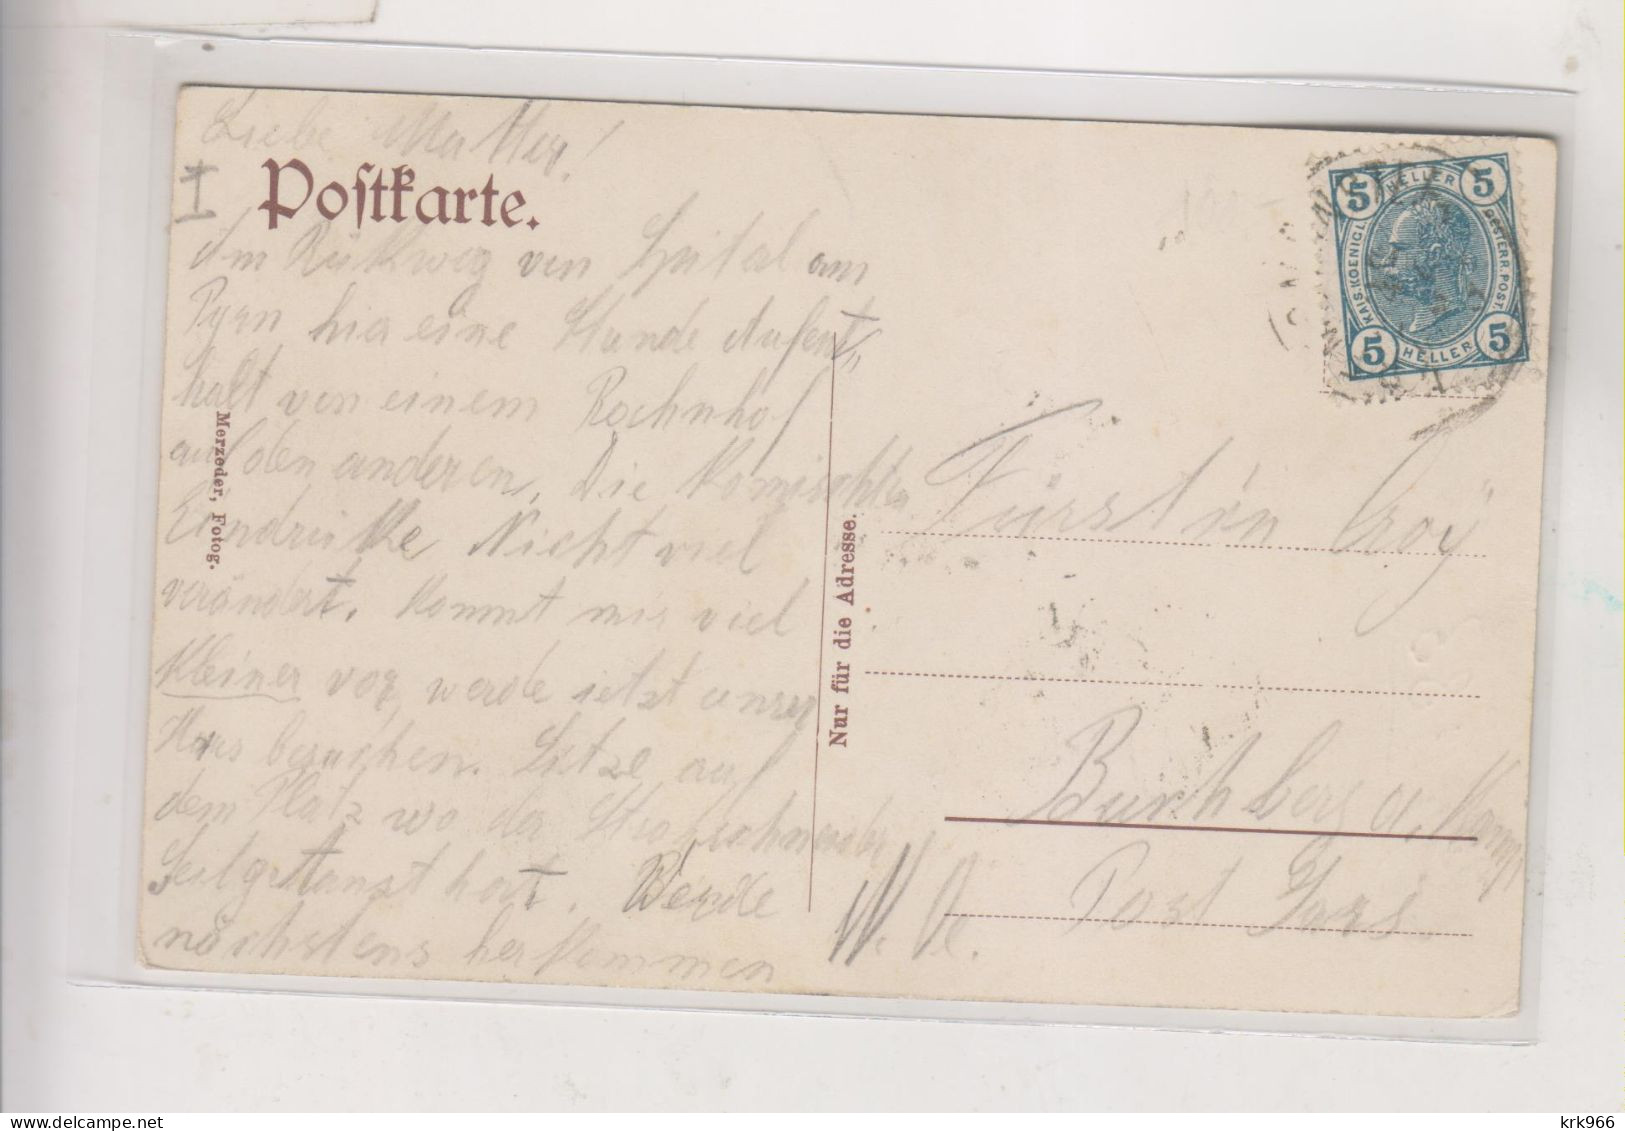 Liebe Mutter!
I
Postkarte.
Am Rükweg von Spital am
Pyrn hir eine Stunde Aufent
halt von einem Bochnhof
auf den anderen. Die Komischten
Eindrüke Nicht viel
verändert. Kommt mir viel
kleiner vor, werde jetzt unser
Haus besuchen. Sitze auf
dem Platz wo der
Seilgetanzt hat. Werde
nächstens herkommen
Merzeder, Fotog.
Nur für die Adresse.
5 HELLER 5
KAIS. KOENIGL. OESTERR. POST.
5 HELLER 5
Fürstin Croÿ
Buchberg a. Kamp
Post Gars.
N. Ö.
krk966